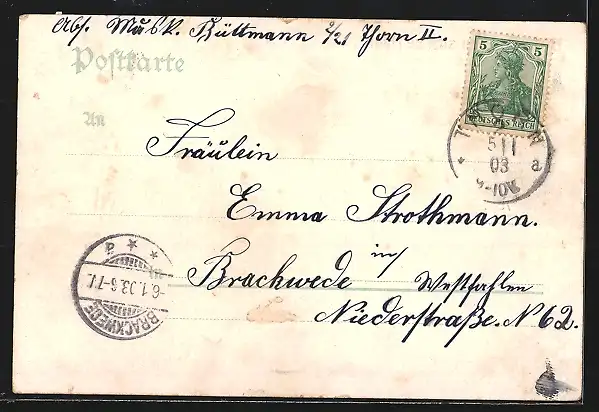 Abs. Musk. Büttmann 2/21 Thorn II.
Postkarte
5
5
DEUTSCHES REICH
An
5 1 1
03 a
9-10V.
Fräulein
Emma Strothmann.
in
Brackwede Westfahlen
Niederstraße. N 62.
a
6.1.03.6-7V.
BRACKWEDE